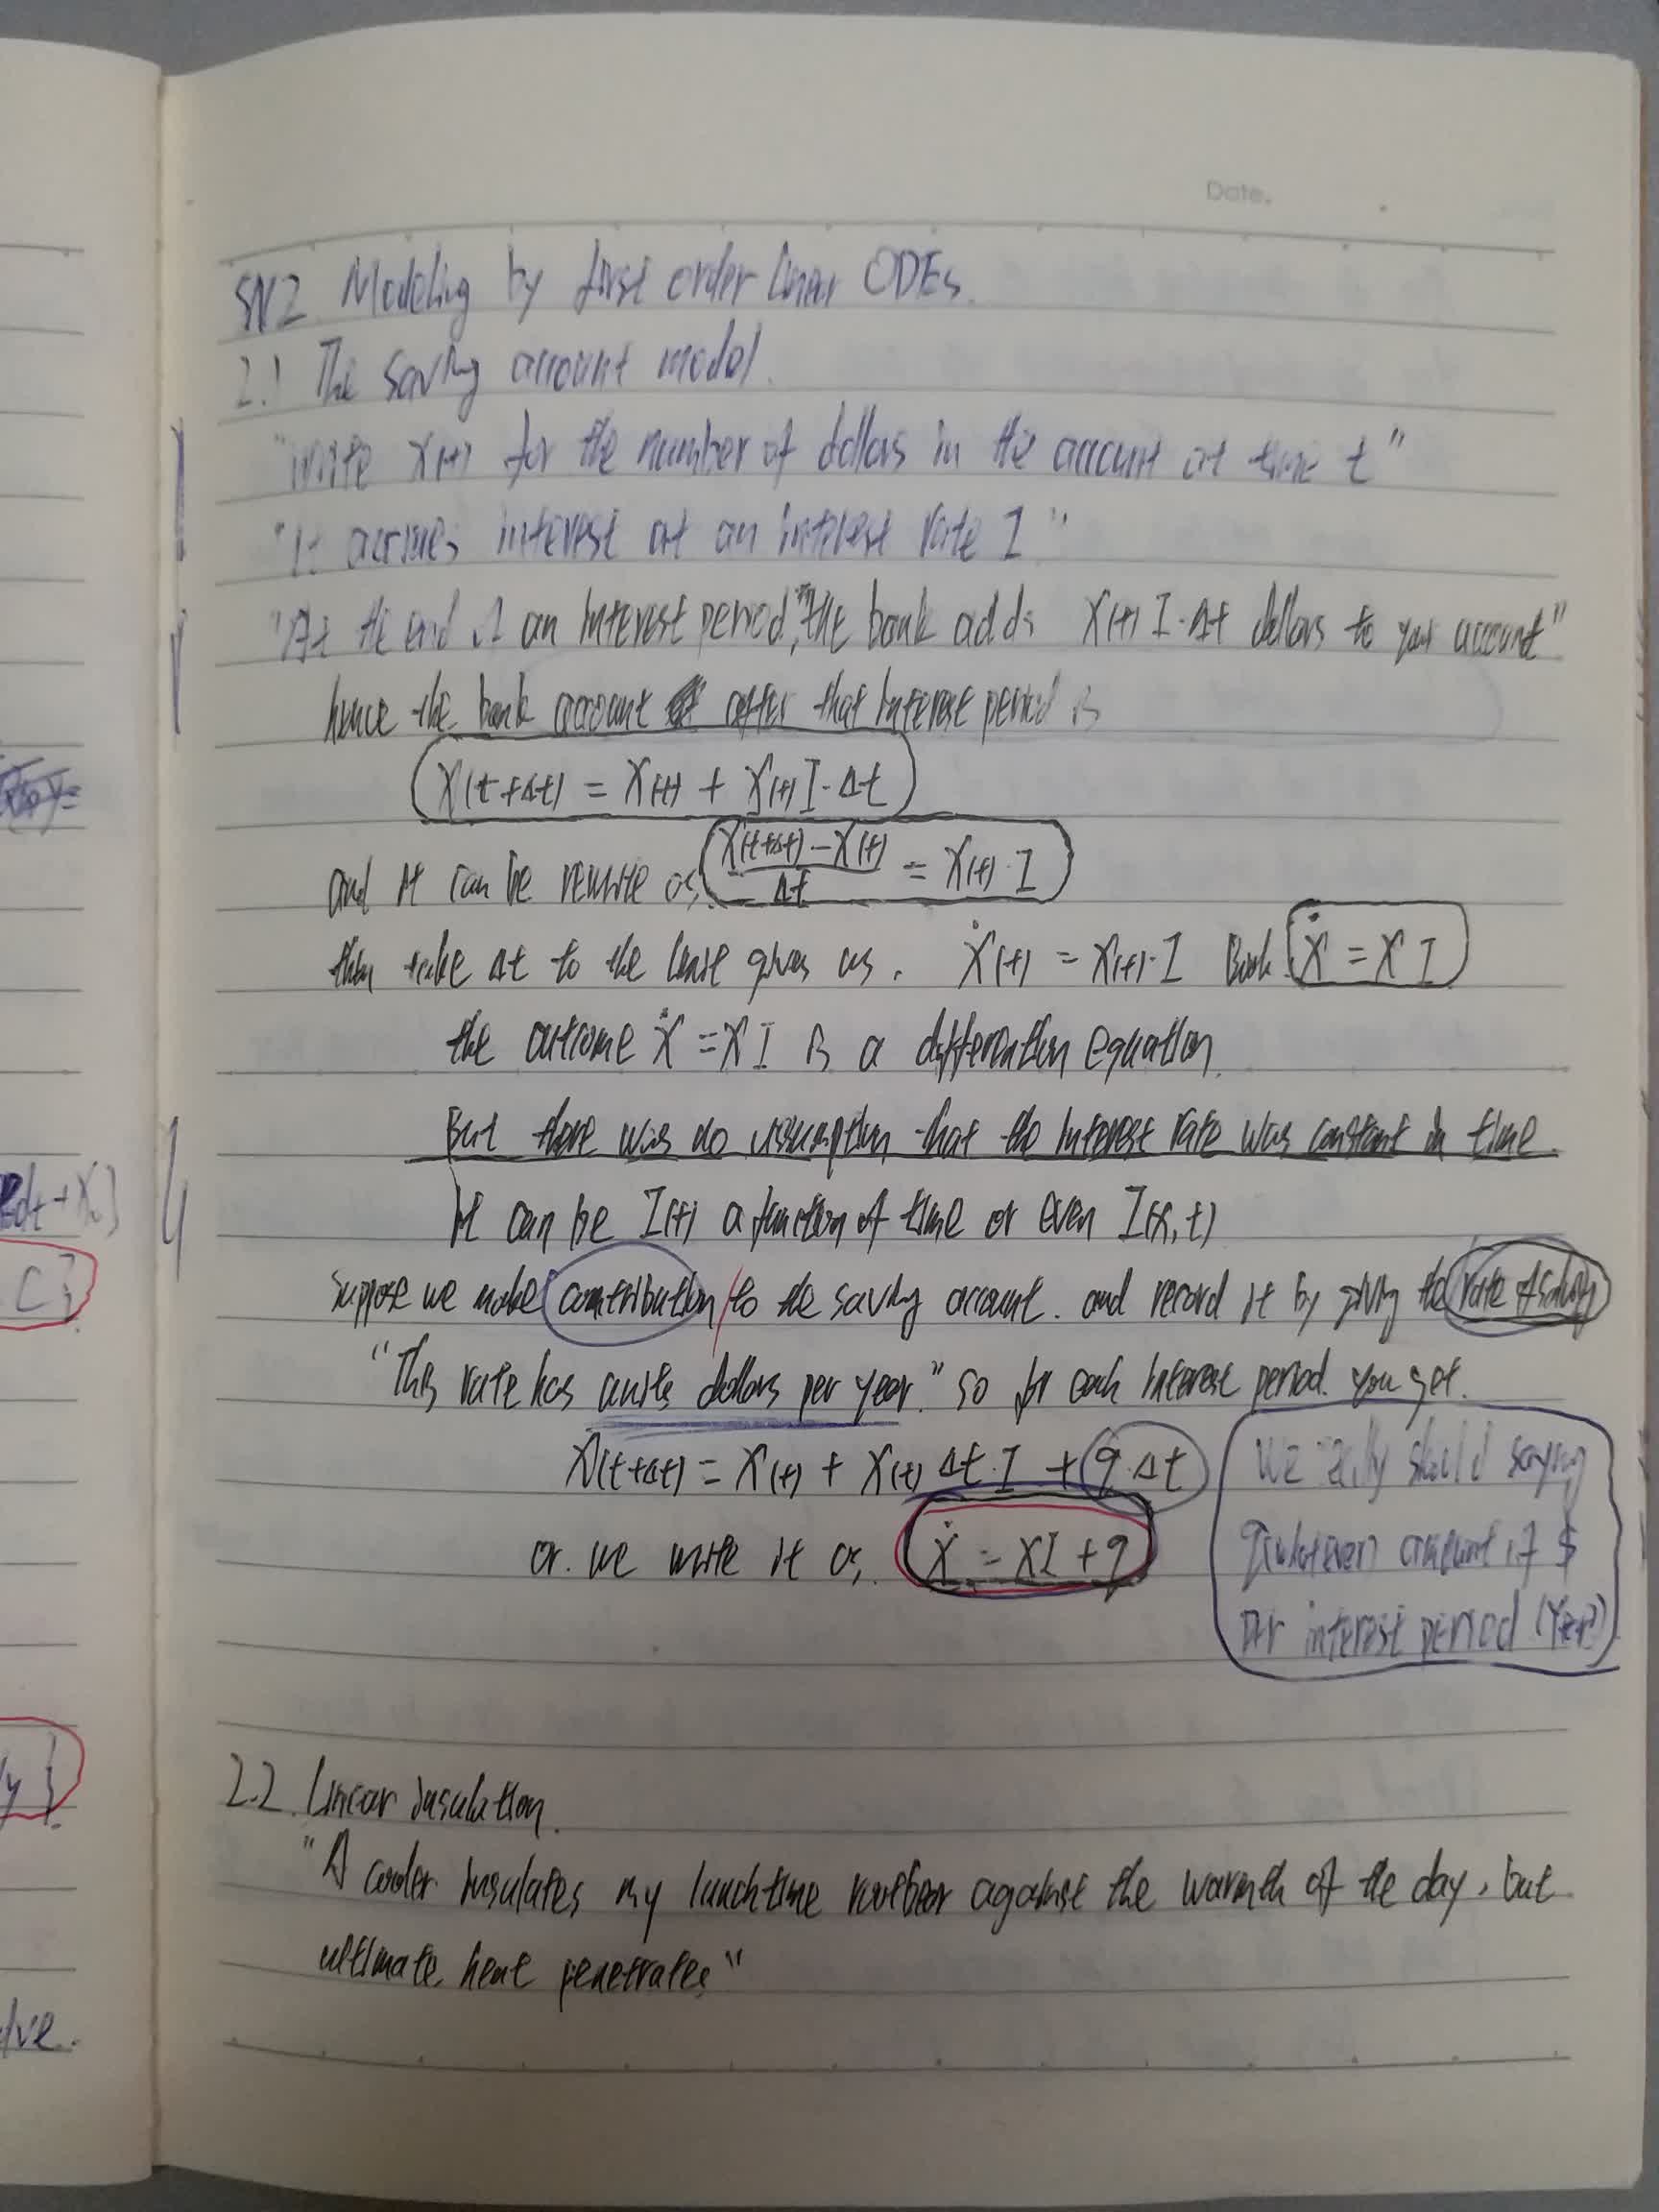 Date.
SN2 Modeling by first order linear ODEs.
2.1 The saving account model.
"write X(t) for the number of dollars in the account at time t"
"It accrues interest at an interest rate I"
"At the end of an interest period, the bank adds X(t) I·Δt dollars to your account"
hence the bank account after that interest period is
X(t+Δt) = X(t) + X(t) I·Δt
and it can be rewrite as X(t+Δt) - X(t) / Δt = X(t)·I
then take Δt to the gives us. Ẋ(t) = X(t)·I Ẋ = X I
the outcome Ẋ = X I is a equation.
But there was no assumption that the interest rate was constant in time.
It can be I(t) a function of time or even I(x,t)
suppose we make contribution to the saving account. and record it by giving the rate of
"This rate has units dollars per year." so for each interest period. you get.
X(t+Δt) = X(t) + X(t) Δt·I + q·Δt
or we write it as. Ẋ = XI + q
We should saying
q amount of $
per interest period (Year)
2.2. Linear insulation.
"A cooler insulates my lunchtime rootbeer against the warmth of the day, but
ultimate heat penetrates"
dt + X
C }
y }
lve.